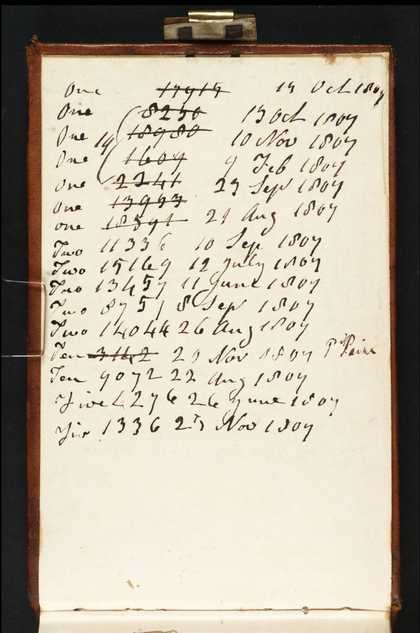 One 17917 17 Oct 1807
One 8230 13 Oct 1807
One 14 18980 10 Nov 1807
One 1609 9 Feb 1807
One 2341 23 Sep 1807
One 13963 
One 18591 21 Aug 1807
Two 11336 10 Sep 1807
Two 15169 12 July 1807
Two 13457 11 June 1807
Two 8751 8 Sep 1807
Two 14044 26 Aug 1807
Ten 3142 20 Nov 1807
Ten 9072 22 Aug 1807
Five 4276 26 June 1807
1336 25 Nov 1807